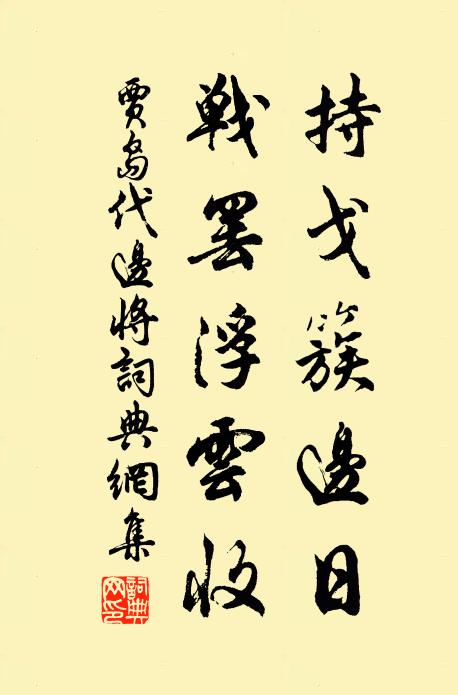 持戈簇邊日
戰罷浮雲收
賈島代邊將詞典網集
詞典網印